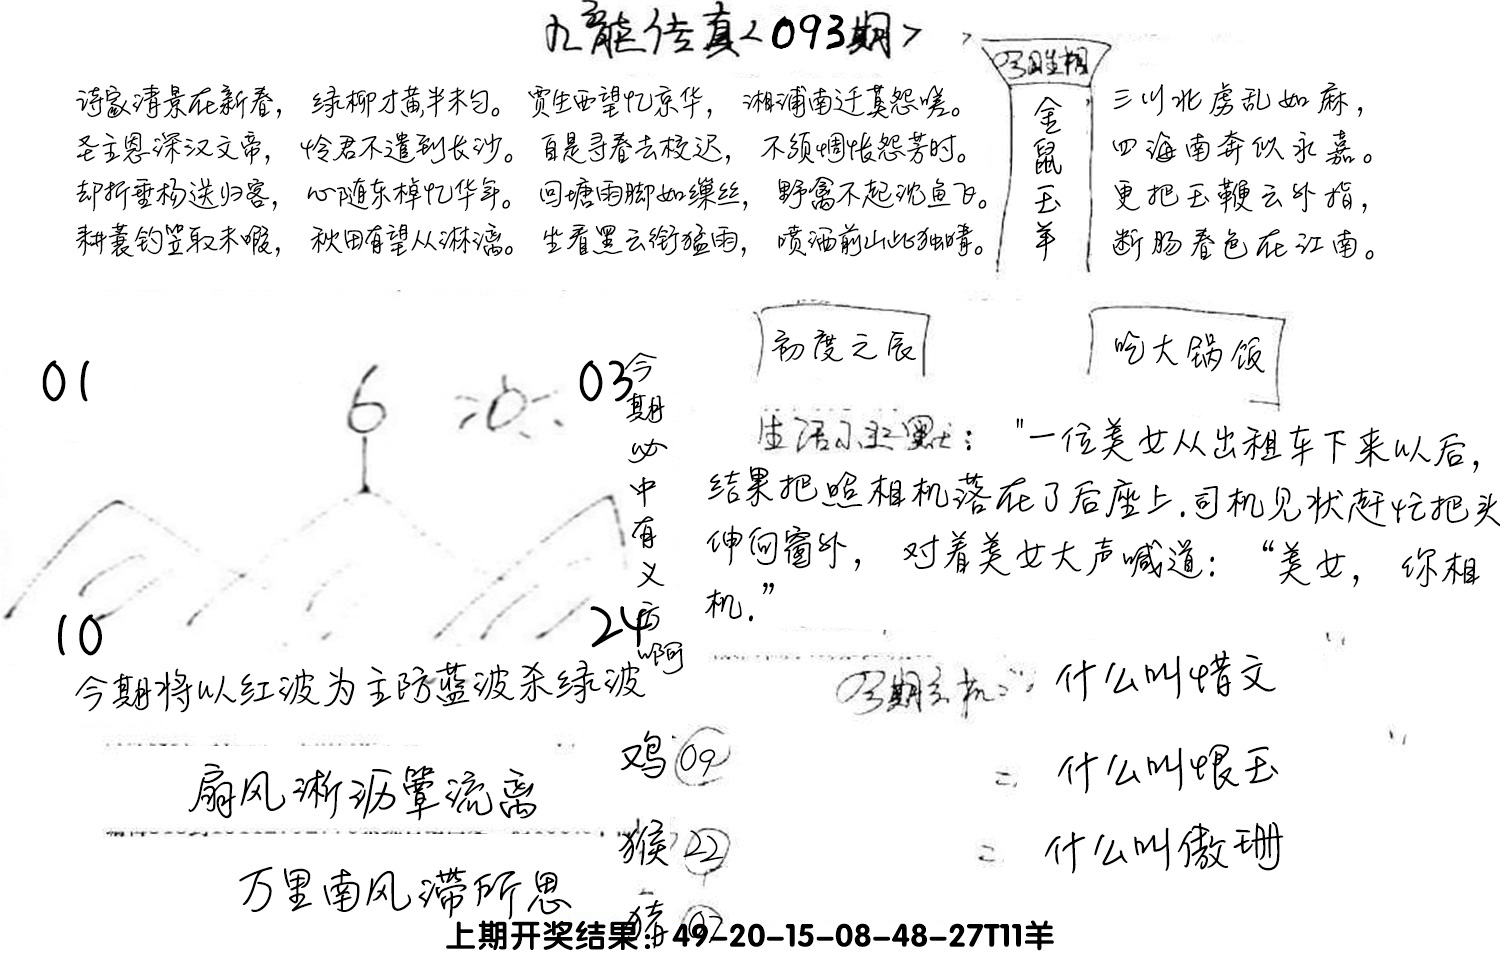 九龙传真<093期>
诗家清景在新春， 绿柳才黄半未匀。 贾生西望忆京华， 湘浦南迁莫怨嗟。
圣主恩深汉文帝， 怜君不遣到长沙。 自是寻春去校迟， 不须惆怅怨芳时。
却折垂杨送归客， 心随东棹忆华年。 回塘雨脚如缫丝， 野禽不起沈鱼飞。
耕蓑钓笠取未暇， 秋田有望从淋漓。 生看黑云衔猛雨， 喷洒前山此独晴。
今期生相
金鼠玉羊
三川北虏乱如麻，
四海南奔似永嘉。
更把玉鞭云外指，
断肠春色在江南。
初度之辰
吃大锅饭
01
6
03
10
24
今期必中有义方啊
今期将以红波为主防蓝波杀绿波
生活小幽默： "一位美女从出租车下来以后，
结果把照相机落在了后座上.司机见状赶忙把头
伸向窗外， 对着美女大声喊道： “美女， 你相
机.”
今期玄机: 什么叫惜文
= 什么叫恨玉
= 什么叫傲珊
扇风淅沥簟流离
万里南风滞所思
鸡 09
猴 22
猪
上期开奖结果：49-20-15-08-48-27T11羊